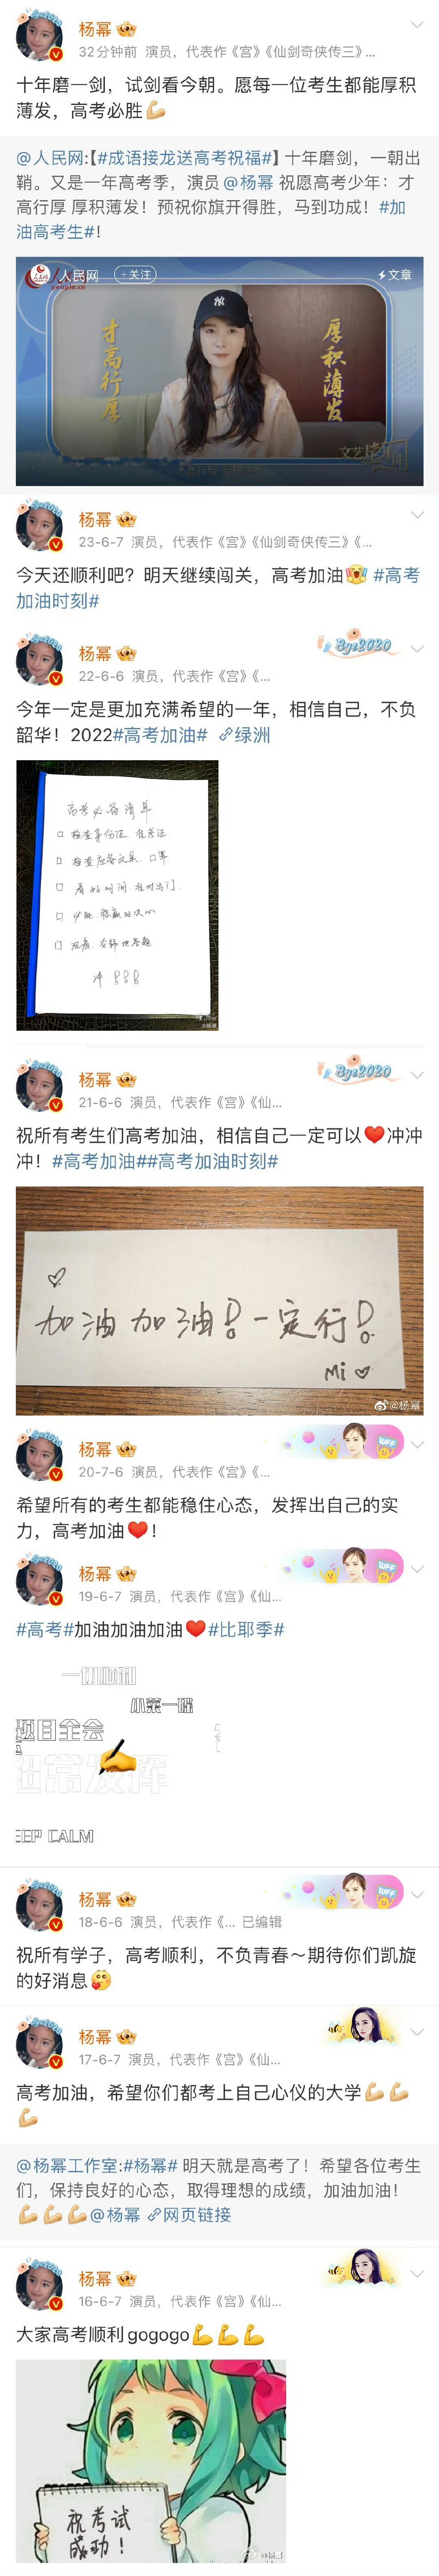 杨幂
32分钟前 演员，代表作《宫》《仙剑奇侠传三》...
十年磨一剑，试剑看今朝。愿每一位考生都能厚积
薄发，高考必胜💪
@人民网:【#成语接龙送高考祝福#】十年磨剑，一朝出
鞘。又是一年高考季，演员@杨幂 祝愿高考少年：才
高行厚 厚积薄发！预祝你旗开得胜，马到功成！#加
油高考生#！
人民网
people.cn
+关注
文章
才高行厚
厚积薄发
杨幂
23-6-7 演员，代表作《宫》《仙剑奇侠传三》《...
今天还顺利吧？明天继续闯关，高考加油 #高考
加油时刻#
杨幂
Bye2020
22-6-6 演员，代表作《宫》《...
今年一定是更加充满希望的一年，相信自己，不负
韶华！2022#高考加油# 绿洲
高考必备清单
检查身份证、准考证
检查应答文具、口罩
看好时间、准时出门
沉着、冷静地答题
冲!!!
@杨幂
杨幂
Bye2020
21-6-6 演员，代表作《宫》《仙...
祝所有考生们高考加油，相信自己一定可以❤️冲冲
冲！#高考加油##高考加油时刻#
加油加油！一定行！
Mi
@杨幂
杨幂
WFF
20-7-6 演员，代表作《宫》《...
希望所有的考生都能稳住心态，发挥出自己的实
力，高考加油❤️！
杨幂
WFF
19-6-7 演员，代表作《宫》《仙...
#高考#加油加油加油❤️#比耶季#
一切顺利
小菜一碟
题目全会
超常发挥
EEP CALM
杨幂
WFF
18-6-6 演员，代表作《... 已编辑
祝所有学子，高考顺利，不负青春～期待你们凯旋
的好消息😘
杨幂
17-6-7 演员，代表作《宫》《仙...
高考加油，希望你们都考上自己心仪的大学💪💪
💪
@杨幂工作室:#杨幂# 明天就是高考了！希望各位考生
们，保持良好的心态，取得理想的成绩，加油加油！
💪💪💪@杨幂 网页链接
杨幂
16-6-7 演员，代表作《宫》《仙...
大家高考顺利gogogo💪💪💪
祝考试
成功！